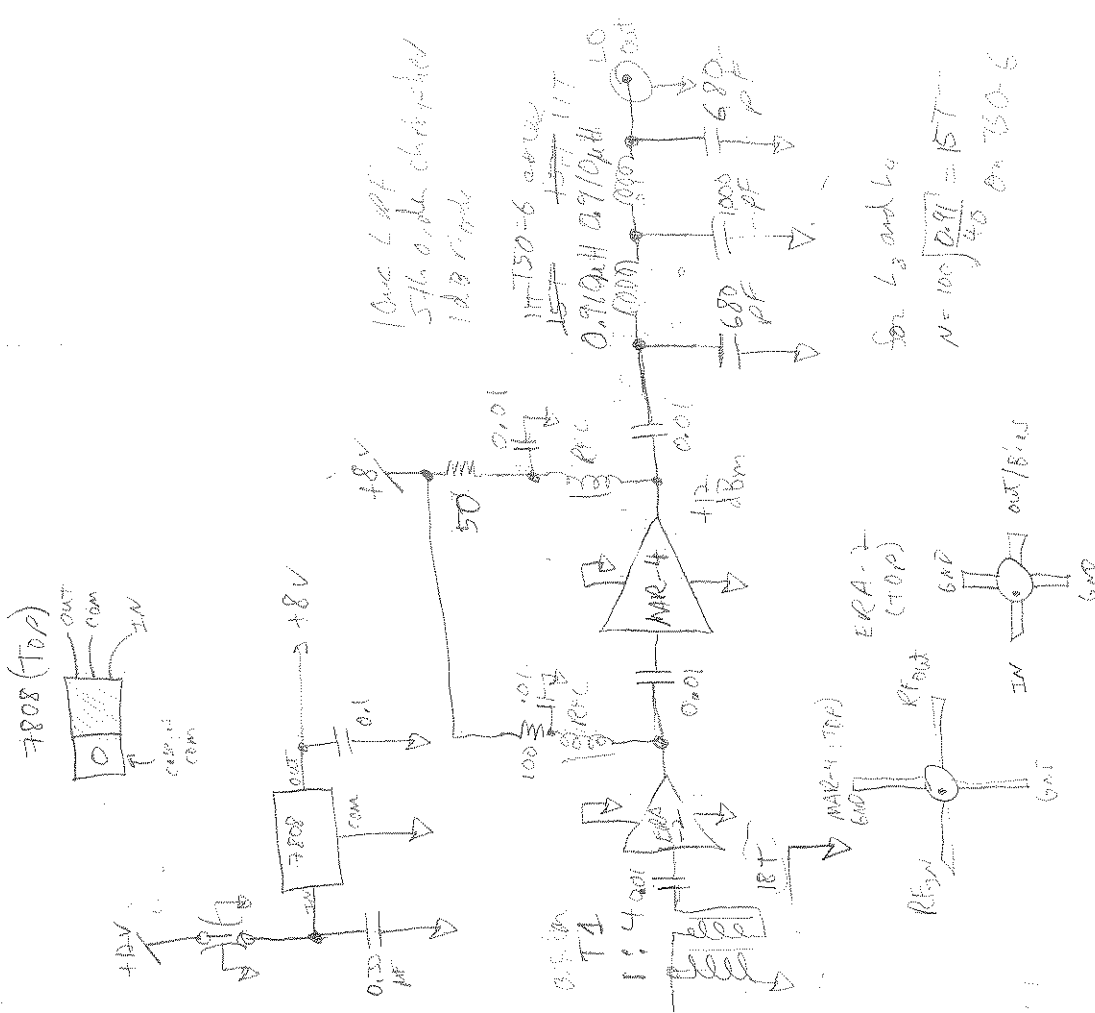 7808 (TOP)
OUT
COM
IN
COM
+12V
IN
7808
OUT
COM
0.33
µF
0.1
+8V
+8V
50
0.01
RFC
100
.01
RFC
T1
1:4
0.01
18T
ERA
-2
0.01
MAR-4
+17
dBm
0.01
5th order chebychev
1dB ripple
11T T50-6
15T
15T 11T
0.910µH 0.910µH
680
pF
1000
pF
680
pF
LO
out
for L3 and L4
N = 100 √0.91/40 = 15T
on T50-6
MAR-4 (TOP)
GND
RF IN
RF OUT
GND
ERA-2
(TOP)
GND
IN
out/Bias
GND